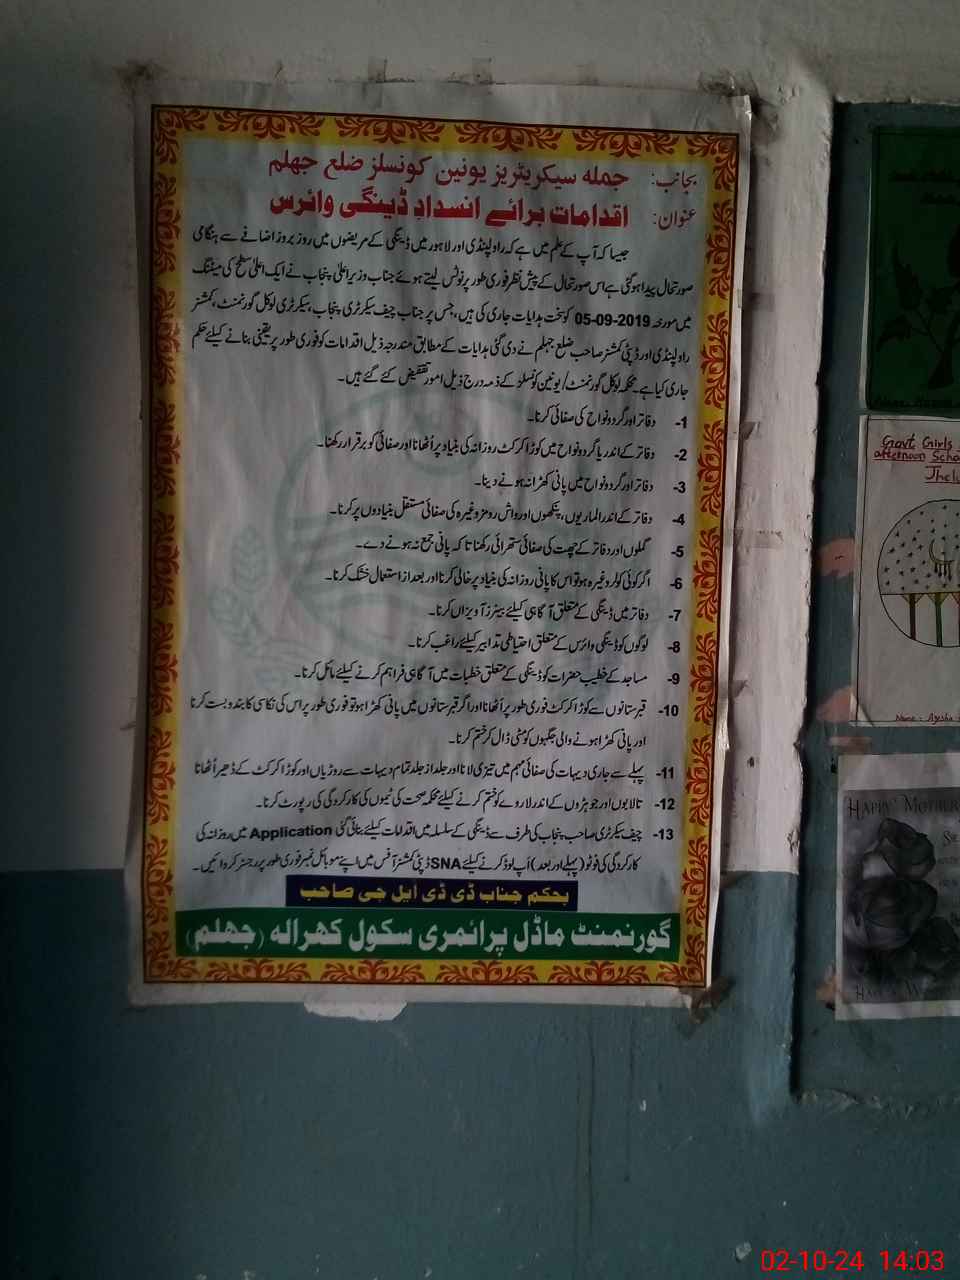 بجانب: جملہ سیکریٹریز یونین کونسلز ضلع جھلم
عنوان: اقدامات برائے انسدادِ ڈینگی وائرس
جیسا کہ آپ کے علم میں ہے کہ راولپنڈی اور لاہور میں ڈینگی کے مریضوں میں روز بروز اضافے سے ہنگامی
صورتحال پیدا ہوگئی ہے اس صورتحال کے پیش نظر فوری طور پر نوٹس لیتے ہوئے جناب وزیراعلیٰ پنجاب نے ایک اعلیٰ سطح کی میٹنگ
میں مورخہ 05-09-2019 کو سخت ہدایات جاری کی ہیں، جس پر جناب چیف سیکرٹری پنجاب، سیکرٹری لوکل گورنمنٹ، کمشنر
راولپنڈی اور ڈپٹی کمشنر صاحب ضلع جہلم نے دی گئی ہدایات کے مطابق مندرجہ ذیل اقدامات کو فوری طور پر یقینی بنانے کیلئے حکم
جاری کیا ہے۔ محکمہ لوکل گورنمنٹ/یونین کونسلز کے ذمہ درج ذیل امور تفویض کئے گئے ہیں۔
1- دفاتر اور گردونواح کی صفائی کرنا۔
2- دفاتر کے اندر یا گردونواح میں کوڑا کرکٹ روزانہ کی بنیاد پر اُٹھانا اور صفائی کو برقرار رکھنا۔
3- دفاتر اور گردونواح میں پانی کھڑا نہ ہونے دینا۔
4- دفاتر کے اندر الماریوں، پنکھوں اور واش رومز وغیرہ کی صفائی مستقل بنیادوں پر کرنا۔
5- گملوں اور دفاتر کے چھت کی صفائی ستھرائی رکھنا تا کہ پانی جمع نہ ہونے دے۔
6- اگر کوئی کولر وغیرہ ہو تو اس کا پانی روزانہ کی بنیاد پر خالی کرنا اور بعد از استعمال خشک کرنا۔
7- دفاتر میں ڈینگی کے متعلق آگاہی کیلئے بینرز آویزاں کرنا۔
8- لوگوں کو ڈینگی وائرس کے متعلق احتیاطی تدابیر کیلئے راغب کرنا۔
9- مساجد کے خطیب حضرات کو ڈینگی کے متعلق خطبات میں آگاہی فراہم کرنے کیلئے مائل کرنا۔
10- قبرستانوں سے کوڑا کرکٹ فوری طور پر اُٹھانا اور اگر قبرستانوں میں پانی کھڑا ہو تو فوری طور پر اس کی نکاسی کا بندوبست کرنا
اور پانی کھڑا ہونے والی جگہوں کو مٹی ڈال کر ختم کرنا۔
11- پہلے سے جاری دیہات کی صفائی مہم میں تیزی لانا اور جلد از جلد تمام دیہات سے روڑیاں اور کوڑا کرکٹ کے ڈھیر اُٹھانا
12- تالابوں اور جوہڑوں کے اندر لاروے کو ختم کرنے کیلئے محکمہ صحت کی ٹیموں کی کارکردگی کی رپورٹ کرنا۔
13- چیف سیکرٹری صاحب پنجاب کی طرف سے ڈینگی کے سلسلہ میں اقدامات کیلئے بنائی گئی Application میں روزانہ کی
کارکردگی کی فوٹو (پہلے اور بعد) اَپ لوڈ کرنے کیلئے SNA ڈپٹی کمشنر آفس میں اپنے موبائل نمبر فوری طور پر رجسٹر کروائیں۔
بحکم جناب ڈی ڈی ایل جی صاحب
گورنمنٹ ماڈل پرائمری سکول کھرالہ (جھلم)
Govt Girls
afternoon Scho
Jhelu
Name: Ayesha
HAPPY MOTHER
02-10-24 14:03